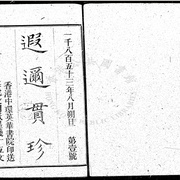 一千八百五十三年八月朔日　第壹號
遐邇貫珍
香港中環英華書院印送